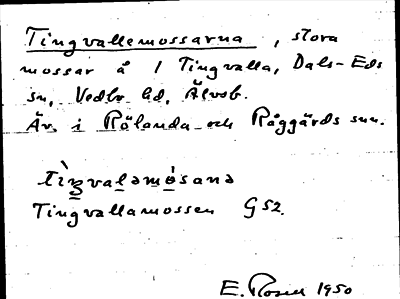 Tingvallemossarna, stora
mossar å 1 Tingvalla, Dals-Eds
sn, Vedbo hd, Älvsb.
Äv. i Rölanda och Råggärds snr.
tìŋvaləmósanə
Tingvallamossen G52.
E. Rosen 1950